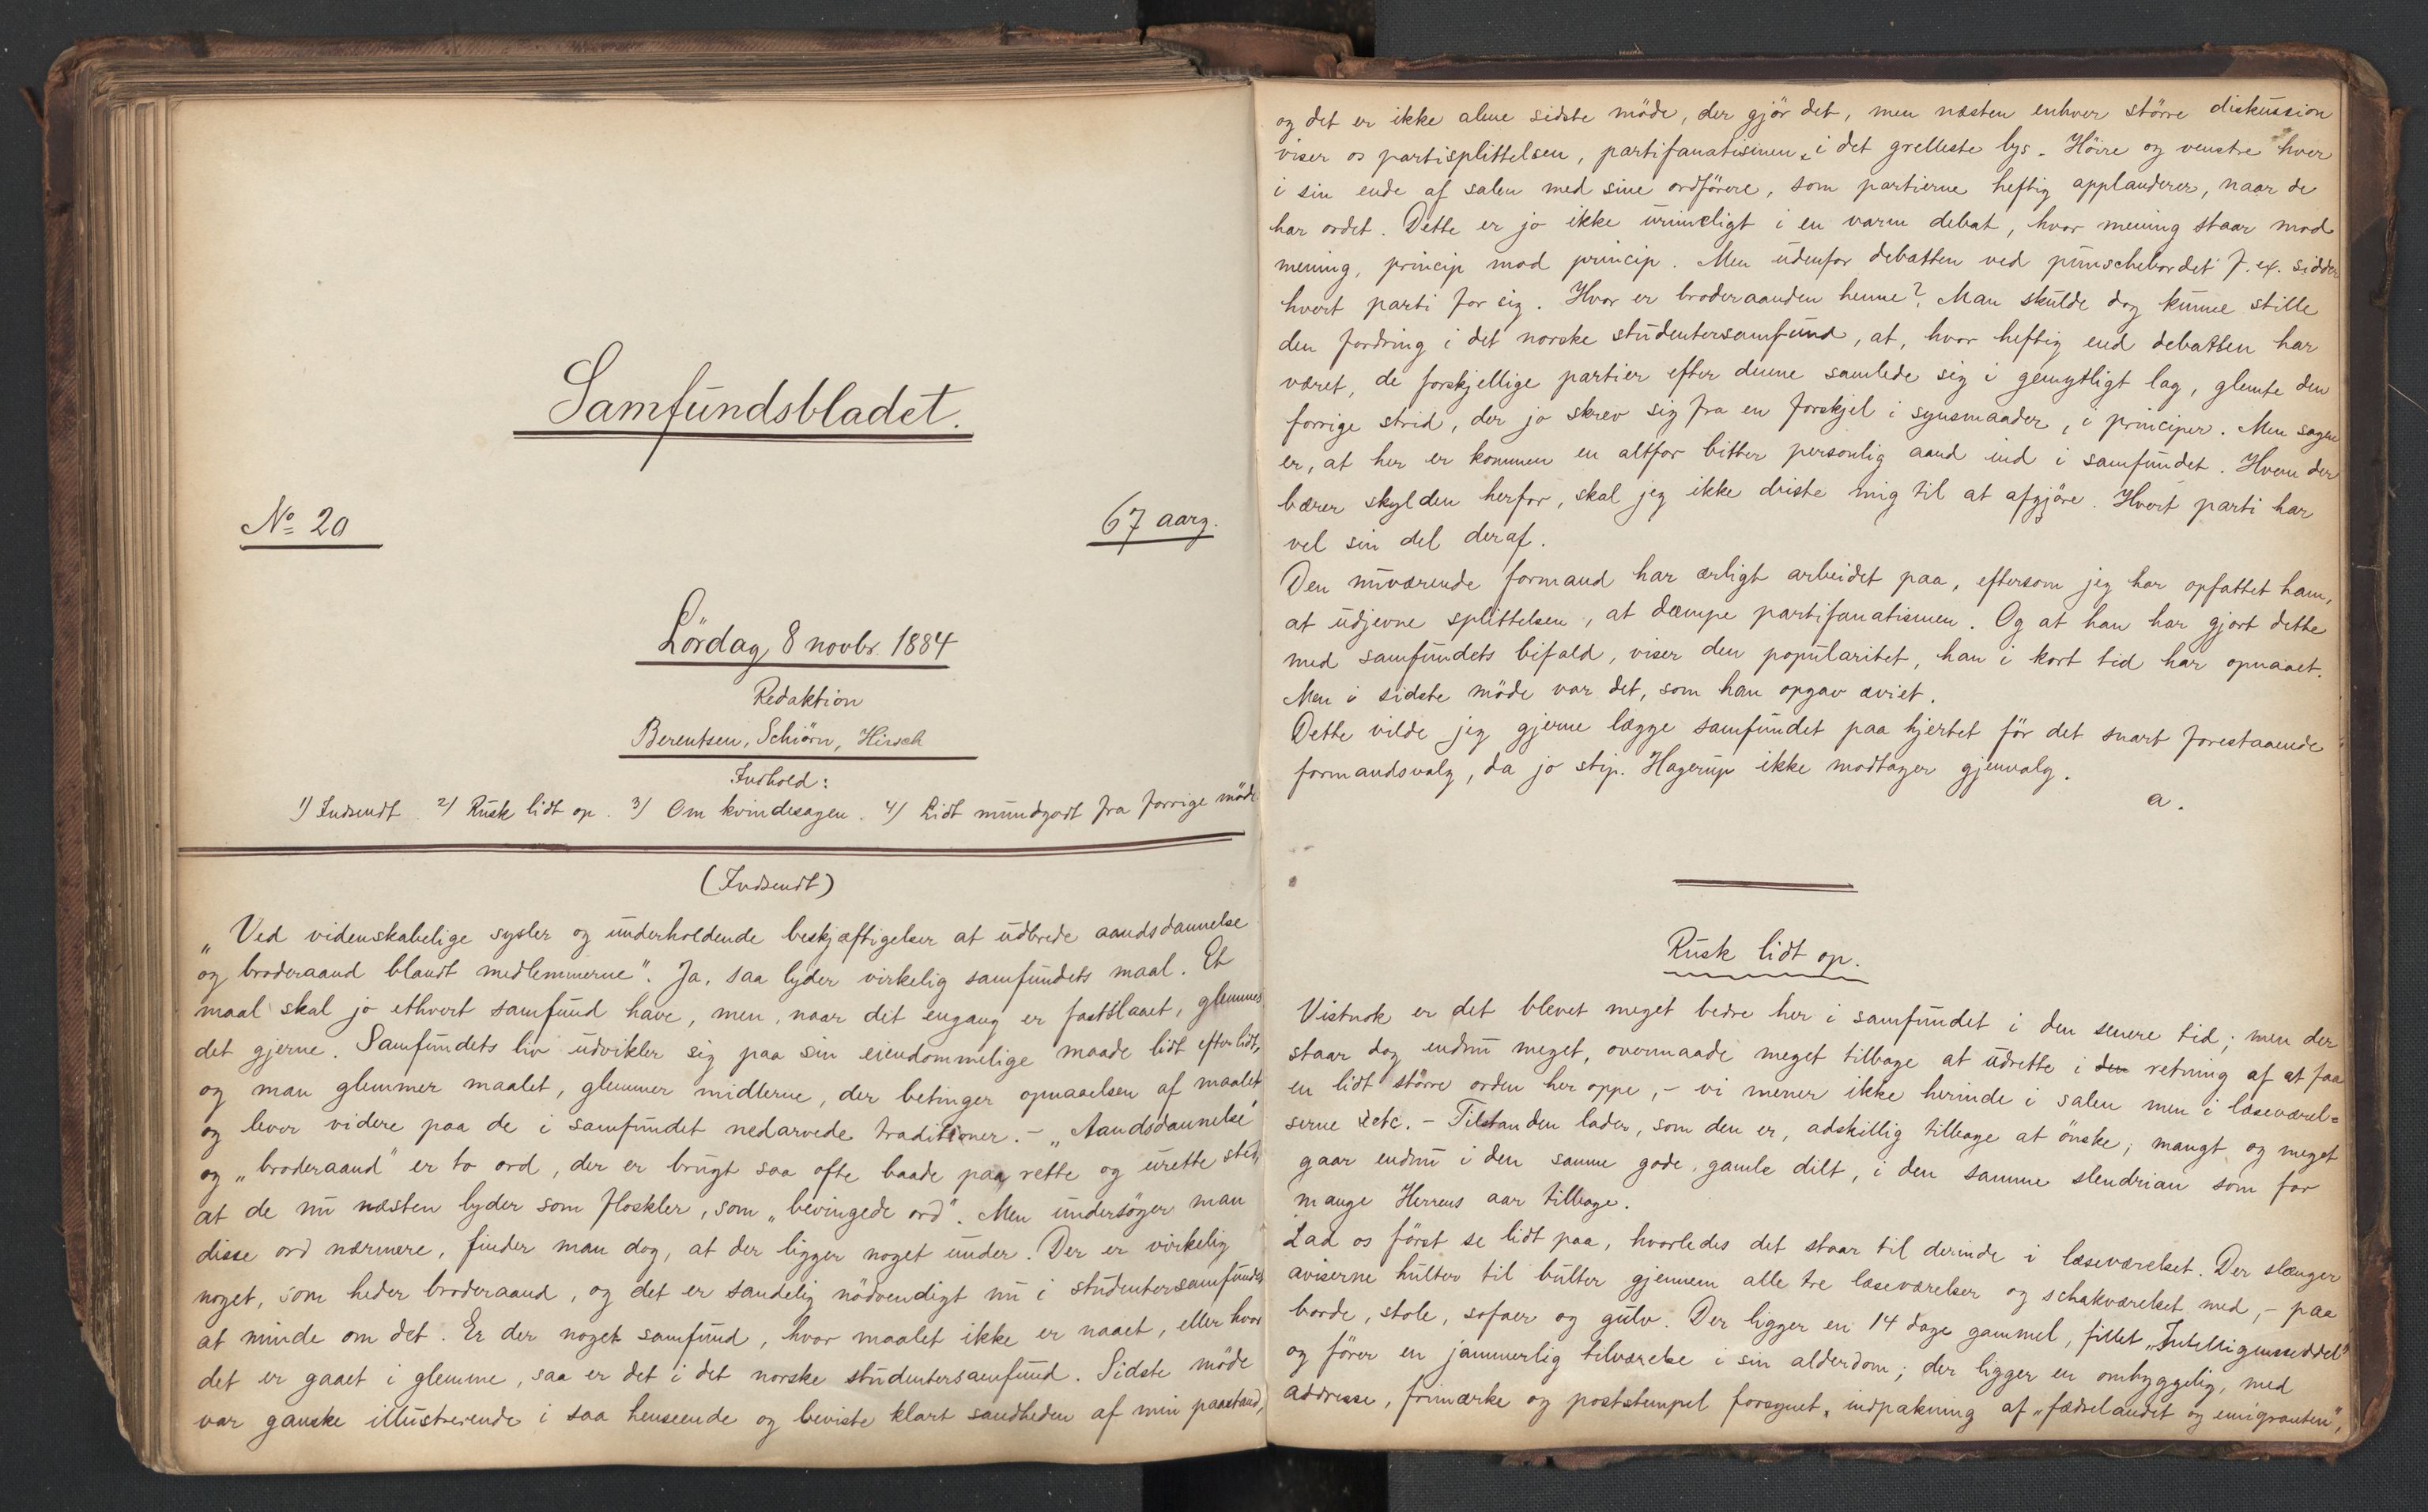 Samfundsbladet.
No 20
67 aarg.
Lördag 8 novbr. 1884
Redaktion
Berentsen, Schiörn, Hirsch
Indhold:
1) Indsendt. 2) Rusk lidt op. 3) Om kvindesagen. 4) Lidt mundgodt fra forrige möde
(Indsendt)
„Ved videnskabelige sysler og underholdende beskjæftigelser at udbrede aandsdannelse
og broderaand blandt medlemmerne". Ja, saa lyder virkelig samfundets maal. Et
maal skal jo ethvert samfund have, men, naar dit engang er fastslaaet, glemmes
det gjerne. Samfundets liv udvikler sig paa sin eiendommelige maade lidt efter lidt,
og man glemmer maalet, glemmer midlerne, der betinger opnaaelsen af maalet
og lever videre paa de i samfundet nedarvede traditioner. – „Aandsdannelse"
og „broderaand" er to ord, der er brugt saa ofte baade paa rette og urette sted,
at de nu næsten lyder som floskler, som „bevingede ord". Men undersöger man
disse ord nærmere, finder man dog, at der ligger noget under. Der er virkelig
noget, som heder broderaand, og det er sandelig nödvendigt nu i studentersamfundet
at minde om det. Er der noget samfund, hvor maalet ikke er naaet, eller hvor
det er gaaet i glemme, saa er det i det norske studentersamfund. Sidste möde
var ganske illustrerende i saa henseende og beviste klart sandheden af min paastand,
og det er ikke alene sidste möde, der gjör det, men næsten enhver större diskussion
viser os partisplittelsen, partifanatismen, i det grelleste lys. Höire og venstre hver
i sin ende af salen med sine ordförere, som partierne heftig applauderer, naar de
har ordet. Dette er jo ikke urimeligt i en varm debat, hvor mening staar mod
mening, princip mod princip. Men udenfor debatten ved punschebordet f. ex. sidder
hvert parti for sig. Hvor er broderaanden henne? Man skulde dog kunne stille
den fordring i det norske studentersamfund, at, hvor heftig end debatten har
været, de forskjellige partier efter denne samlede sig i gemytligt lag, glemte den
forrige strid, der jo skrev sig fra en forskjel i synsmaader, i principer. Men sagen
er, at her er kommen en altfor bitter personlig aand ind i samfundet. Hvem der
bærer skylden herfor, skal jeg ikke driste mig til at afgjöre. Hvert parti har
vel sin del deraf.
Den nuværende formand har ærligt arbeidet paa, eftersom jeg har opfattet ham,
at udjevne splittelsen, at dæmpe partifanatismen. Og at han har gjort dette
med samfundets bifald, viser den popularitet, han i kort tid har opnaaet.
Men i sidste möde var det, som han opgav ævret.
Dette vilde jeg gjerne lægge samfundet paa hjertet för det snart forestaaende
formandsvalg, da jo stip. Hagerup ikke modtager gjenvalg.
a.
Rusk lidt op.
Vistnok er det blevet meget bedre her i samfundet i den senere tid; men der
staar dog endnu meget, overmaade meget tilbage at udrette i den retning af at faa
en lidt större orden her oppe, – vi mener ikke herinde i salen men i læseværel=
serne etc. – Tilstanden lader, som den er, adskillig tilbage at önske; mangt og meget
gaar endnu i den samme gode, gamle dilt, i den samme slendrian som for
mange Herrens aar tilbage.
Lad os först se lidt paa, hvorledes det staar til derinde i læseværelset. Der slænger
aviserne hulter til bulter gjennem alle tre læseværelser og schakværelset med, – paa
borde, stole, sofaer og gulv. Der ligger en 14 dage gammel, fillet „Intelligensseddel"
og förer en jammerlig tilværelse i sin alderdom; der ligger en omhyggelig, med
addresse, frimærke og poststempel forsynet, indpakning af „fædrelandet og emigranten",